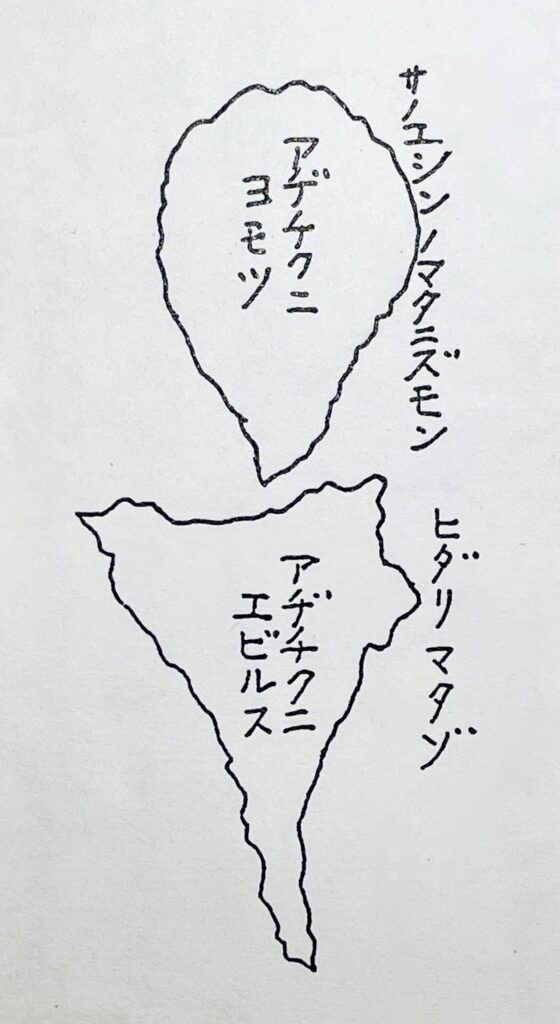 サノエシンノマタニズモン
アヂチクニ
ヨモツ
ヒダリマタゾ
アヂチクニ
エビルス